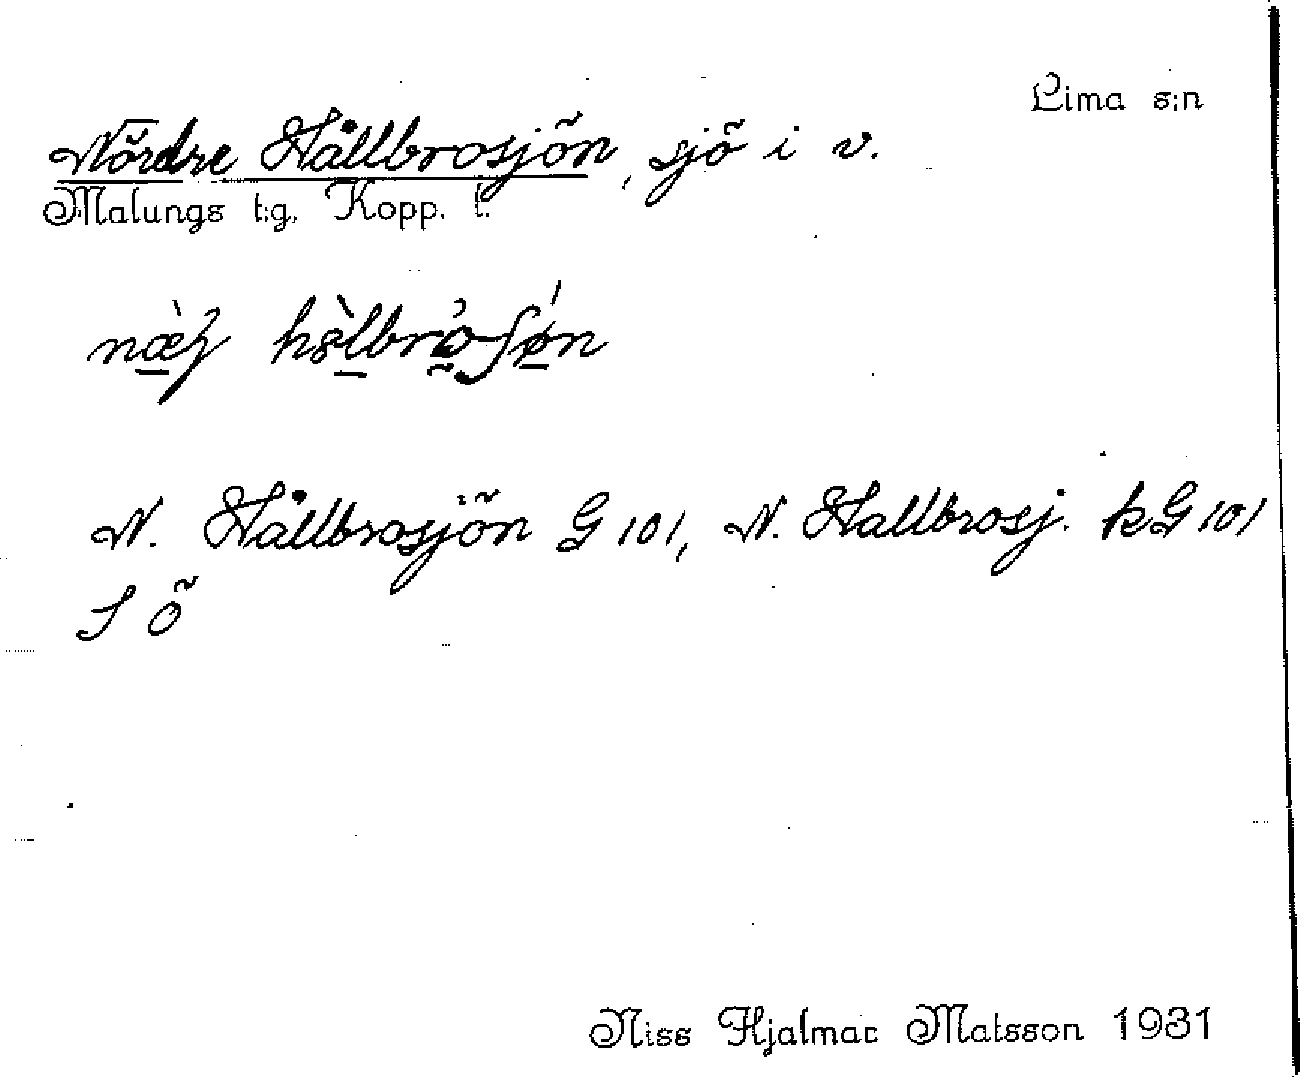 Lima s:n
Nördre Hållbrosjön, sjö i v.
Malungs t:g, Kopp. l.
N. Hållbrosjön G 101, N. Hallbrosj. kG 101
S ö
Niss Hjalmar Matsson 1931